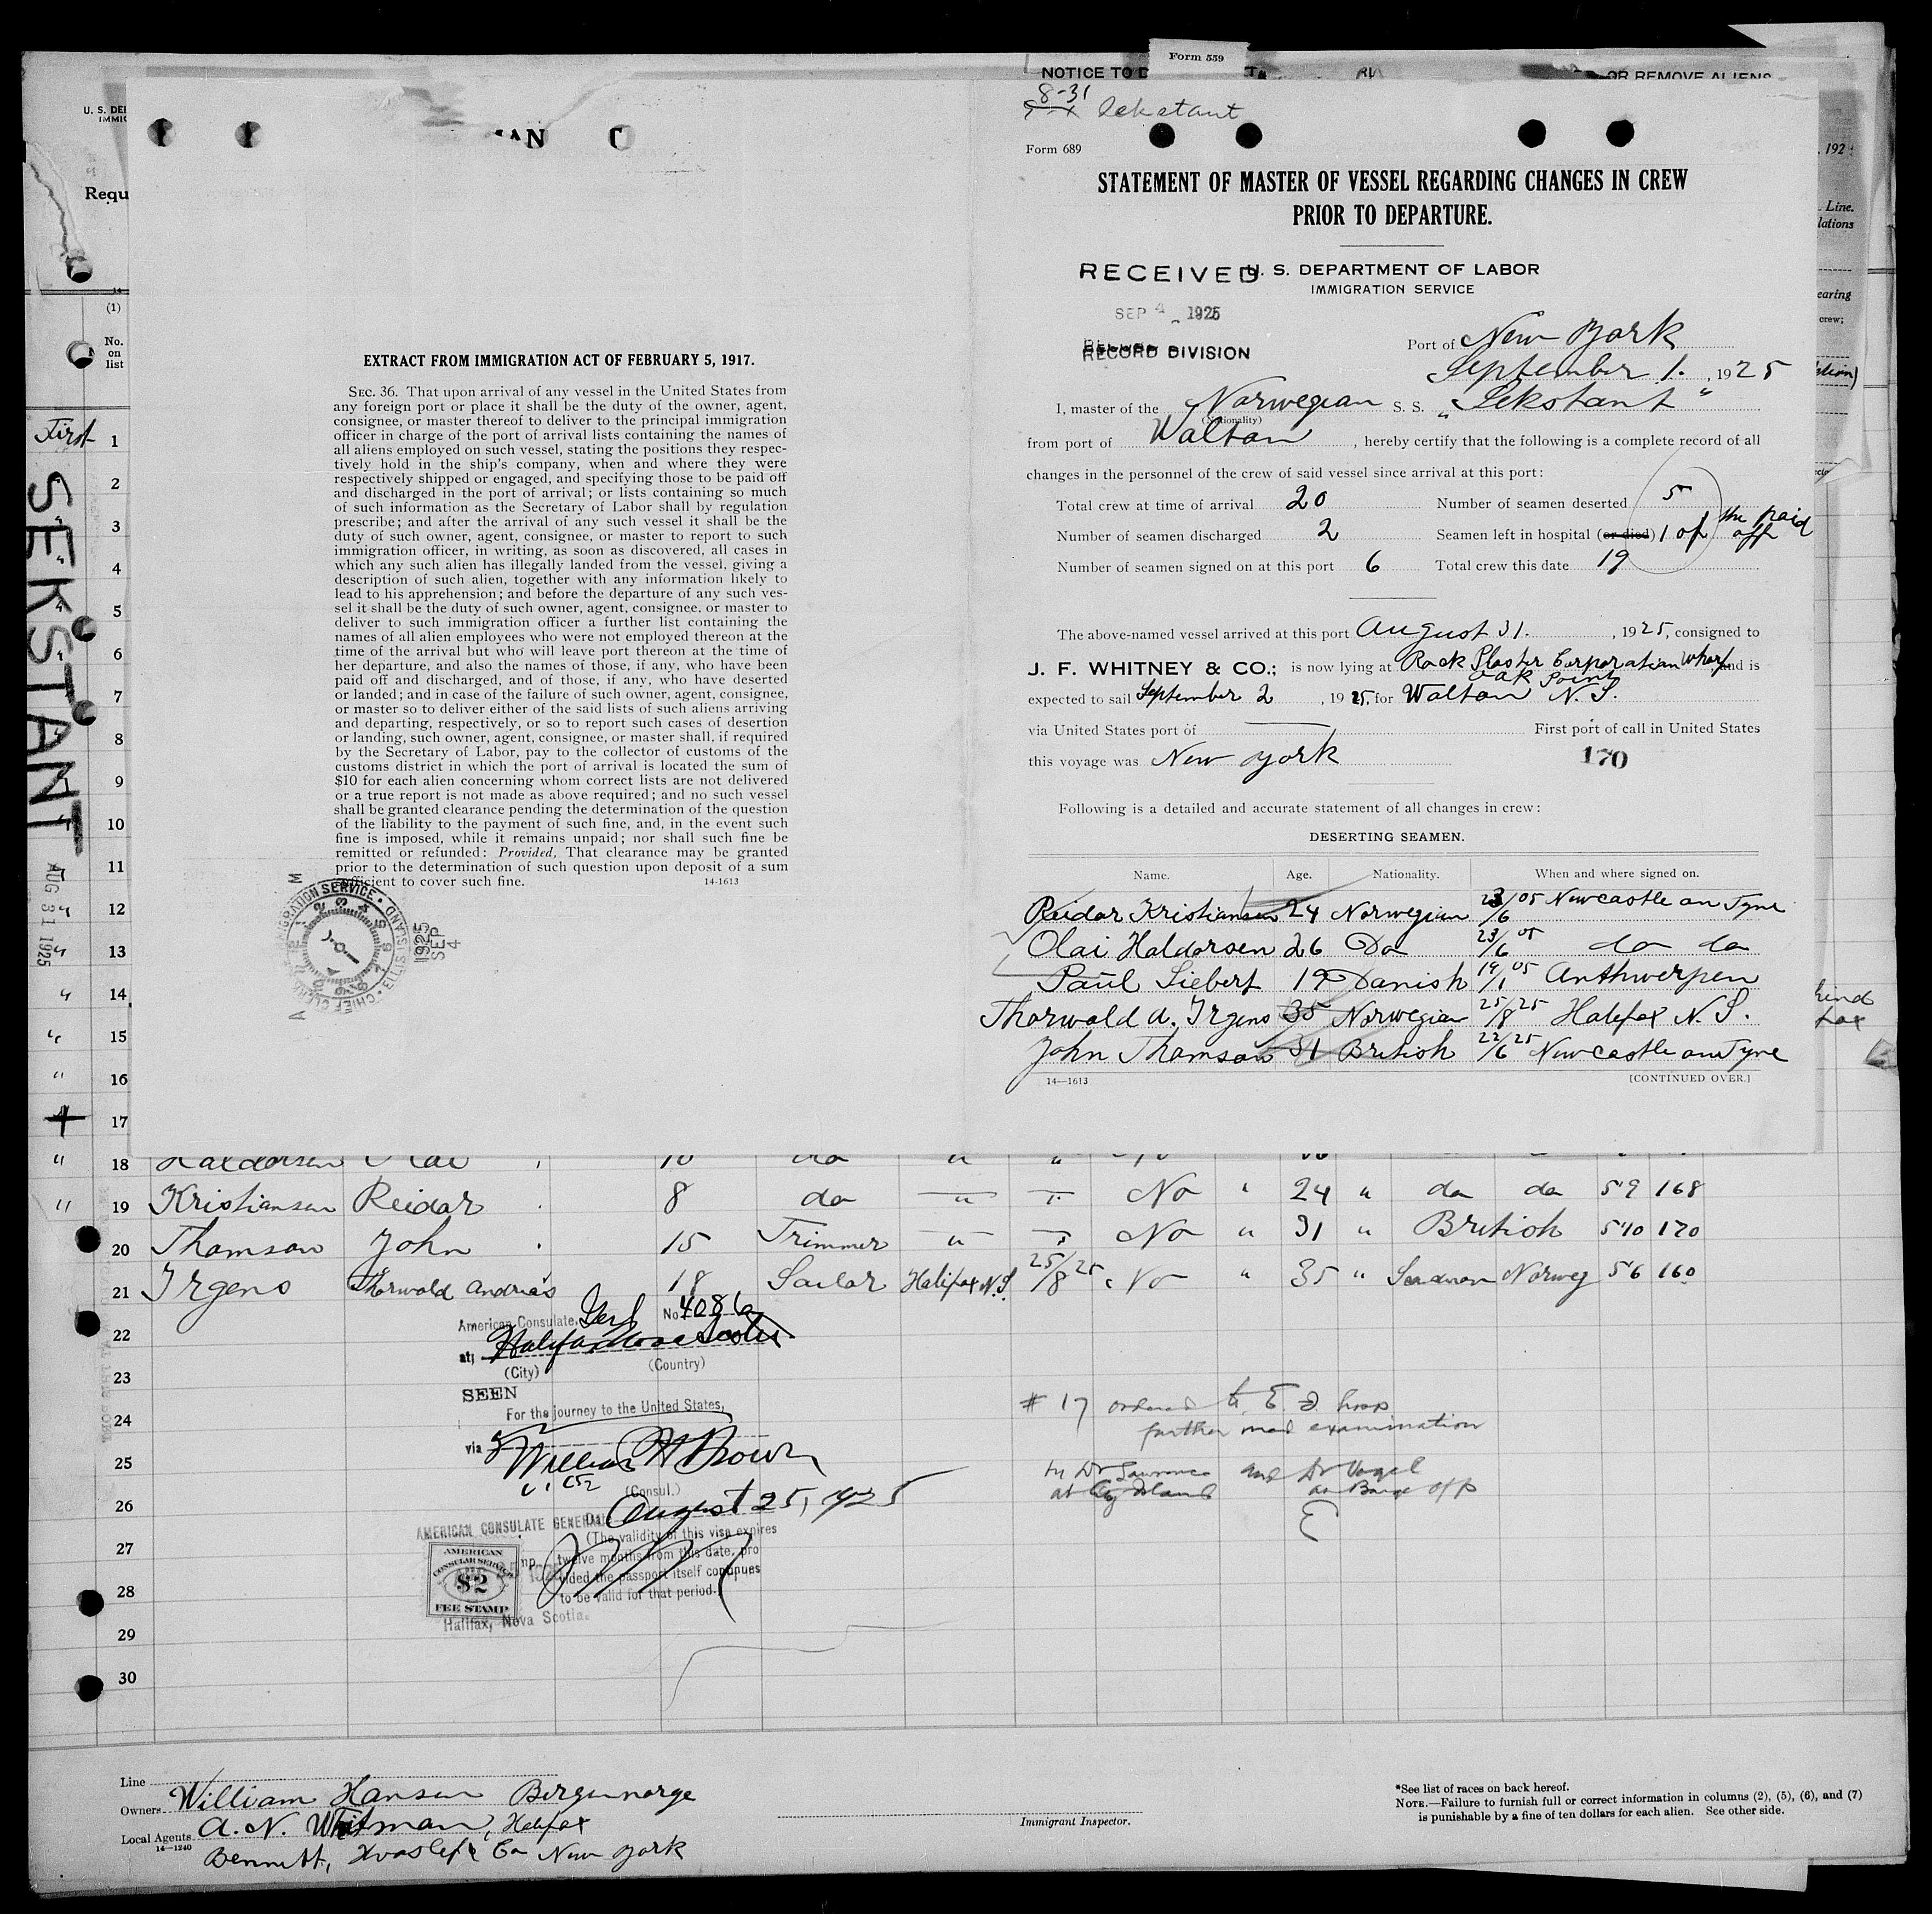 Form 559
NOTICE TO D
OR REMOVE ALIENS
U. S. DE
IMMIG
Requ
(1)
No.
on
list
First
SEKSTANT
AUG 31 1925
EXTRACT FROM IMMIGRATION ACT OF FEBRUARY 5, 1917.
SEC. 36. That upon arrival of any vessel in the United States from
any foreign port or place it shall be the duty of the owner, agent,
consignee, or master thereof to deliver to the principal immigration
officer in charge of the port of arrival lists containing the names of
all aliens employed on such vessel, stating the positions they respec-
tively hold in the ship's company, when and where they were
respectively shipped or engaged, and specifying those to be paid off
and discharged in the port of arrival; or lists containing so much
of such information as the Secretary of Labor shall by regulation
prescribe; and after the arrival of any such vessel it shall be the
duty of such owner, agent, consignee, or master to report to such
immigration officer, in writing, as soon as discovered, all cases in
which any such alien has illegally landed from the vessel, giving a
description of such alien, together with any information likely to
lead to his apprehension; and before the departure of any such ves-
sel it shall be the duty of such owner, agent, consignee, or master to
deliver to such immigration officer a further list containing the
names of all alien employees who were not employed thereon at the
time of the arrival but who will leave port thereon at the time of
her departure, and also the names of those, if any, who have been
paid off and discharged, and of those, if any, who have deserted
or landed; and in case of the failure of such owner, agent, consignee,
or master so to deliver either of the said lists of such aliens arriving
and departing, respectively, or so to report such cases of desertion
or landing, such owner, agent, consignee, or master shall, if required
by the Secretary of Labor, pay to the collector of customs of the
customs district in which the port of arrival is located the sum of
$10 for each alien concerning whom correct lists are not delivered
or a true report is not made as above required; and no such vessel
shall be granted clearance pending the determination of the question
of the liability to the payment of such fine, and, in the event such
fine is imposed, while it remains unpaid; nor shall such fine be
remitted or refunded: Provided, That clearance may be granted
prior to the determination of such question upon deposit of a sum
sufficient to cover such fine. 14-1613
IMMIGRATION SERVICE ELLIS ISLAND CHIEF CLERK
1925 SEP 4
8-31 Sekstant
Form 689
STATEMENT OF MASTER OF VESSEL REGARDING CHANGES IN CREW
PRIOR TO DEPARTURE.
RECEIVED U. S. DEPARTMENT OF LABOR
IMMIGRATION SERVICE
SEP 4 1925
RECORD DIVISION
Port of New York
September 1. , 1925
I, master of the Norwegian S. S. "Sekstant"
(Nationality)
from port of Walton , hereby certify that the following is a complete record of all
changes in the personnel of the crew of said vessel since arrival at this port:
Total crew at time of arrival 20 Number of seamen deserted 5
Number of seamen discharged 2 Seamen left in hospital (or died) 1 of the paid off
Number of seamen signed on at this port 6 Total crew this date 19
The above-named vessel arrived at this port August 31. , 1925, consigned to
J. F. WHITNEY & CO.; is now lying at Rock Plaster Corporation Wharf and is
Oak Point
expected to sail September 2 , 1925, for Walton N. S.
via United States port of First port of call in United States
this voyage was New York 170
Following is a detailed and accurate statement of all changes in crew:
DESERTING SEAMEN.
Name. Age. Nationality. When and where signed on.
Reidar Kristiansen 24 Norwegian 23/6 05 Newcastle on Tyne
Olai Haldorsen 26 Do 23/6 05 do do
Paul Siebert 19 Danish 19/1 05 Anthwerpen
Thorwald A. Irgens 35 Norwegian 25/8 25 Halifax N. S.
John Thomson 31 British 22/6 25 Newcastle on Tyne
14—1613 [CONTINUED OVER.]
192
Line.
lations
earing
crew;
1
2
3
4
5
6
7
8
9
10
11
12
13
14
15
16
17
18 Haldorsen Olai 10 do
19 Kristiansen Reidar 8 do " " No " 24 " do do 59 168
20 Thomson John 15 Trimmer " " No " 31 " British 510 170
21 Irgens Thorwald Andreas 18 Sailor Halifax N.S. 25/8 25 No " 35 " Seadman Norweg 56 160
22
23
24
25
26
27
28
29
30
American Consulate, Genl No 4086
at Halifax Nova Scotia
(City) (Country)
SEEN
For the journey to the United States,
via
William H Brown
(Consul.)
August 25, 1925
AMERICAN CONSULATE GENERAL
(The validity of this visa expires
twelve months from this date, pro
vided the passport itself continues
to be valid for that period.)
AMERICAN
CONSULAR SERVICE
$2
FEE STAMP
Halifax, Nova Scotia.
# 17 ordered to E. I. hosp
further med examination
by Dr Lawrence and Dr Vogel
Line
Owners William Hansen Bergen norge
Local Agents A. N. Whitman, Halifax
14—1240
Bennett, Hvoslef & Co New York
Immigrant Inspector.
*See list of races on back hereof.
NOTE.—Failure to furnish full or correct information in columns (2), (5), (6), and (7)
is punishable by a fine of ten dollars for each alien. See other side.